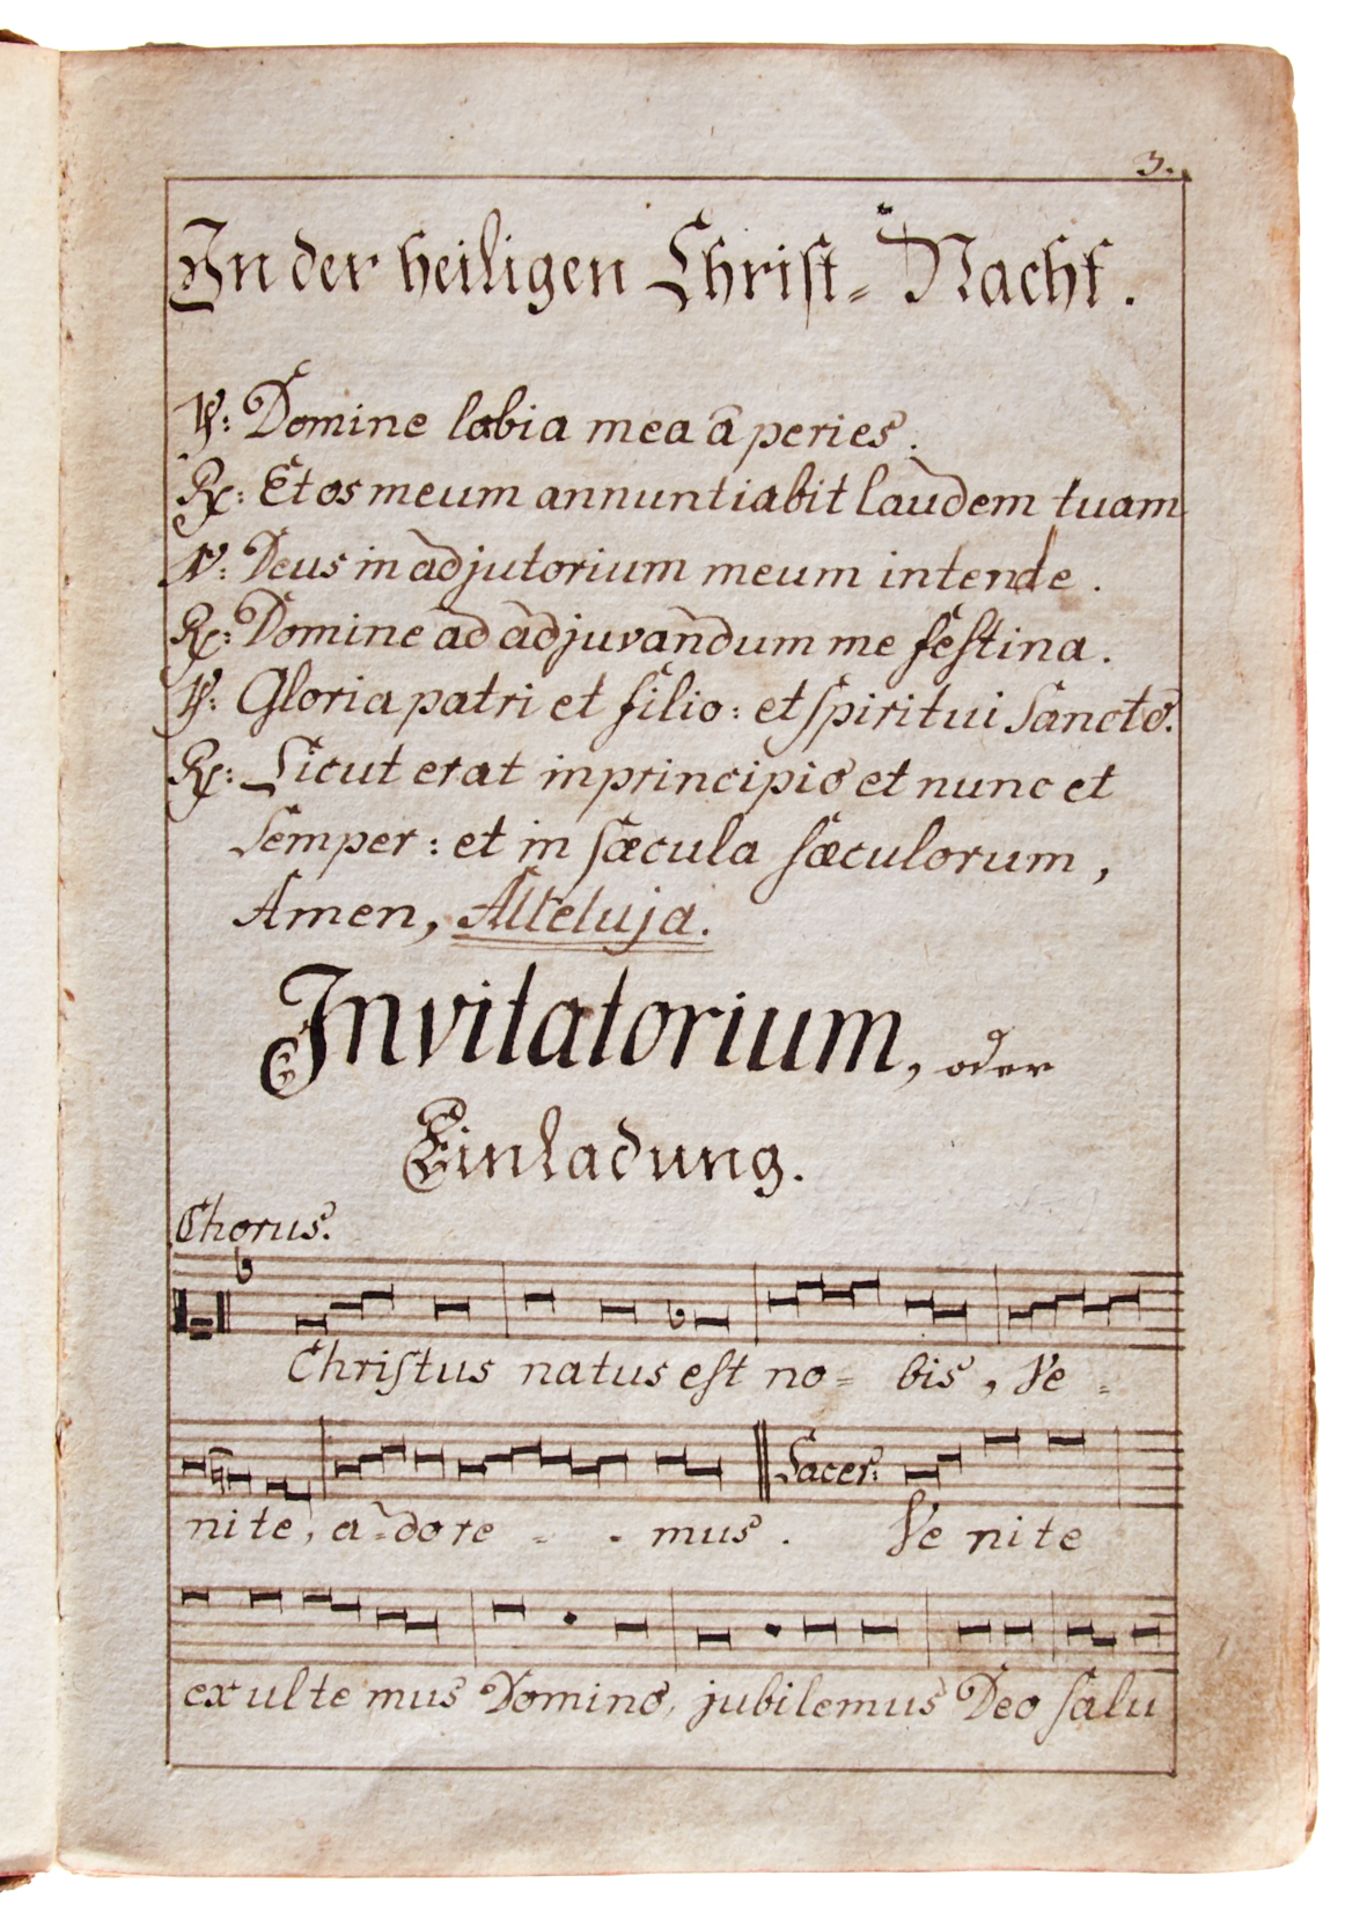 3.
In der heiligen Christ= Nacht.
℣: Domine labia mea a peries.
℟: Et os meum annuntiabit laudem tuam
℣: Deus in adjutorium meum intende.
℟: Domine ad adjuvandum me festina.
℣: Gloria patri et filio: et spiritui Sancto.
℟: Sicut erat in principio et nunc et
Semper: et in sæcula sæculorum,
Amen, Alleluja.
Invitatorium, oder
Einladung.
Chorus.
Christus natus est no= bis, Ve=
nite, a=dore - - mus. Sacer: Ve nite
exulte mus Domino, jubilemus Deo salu